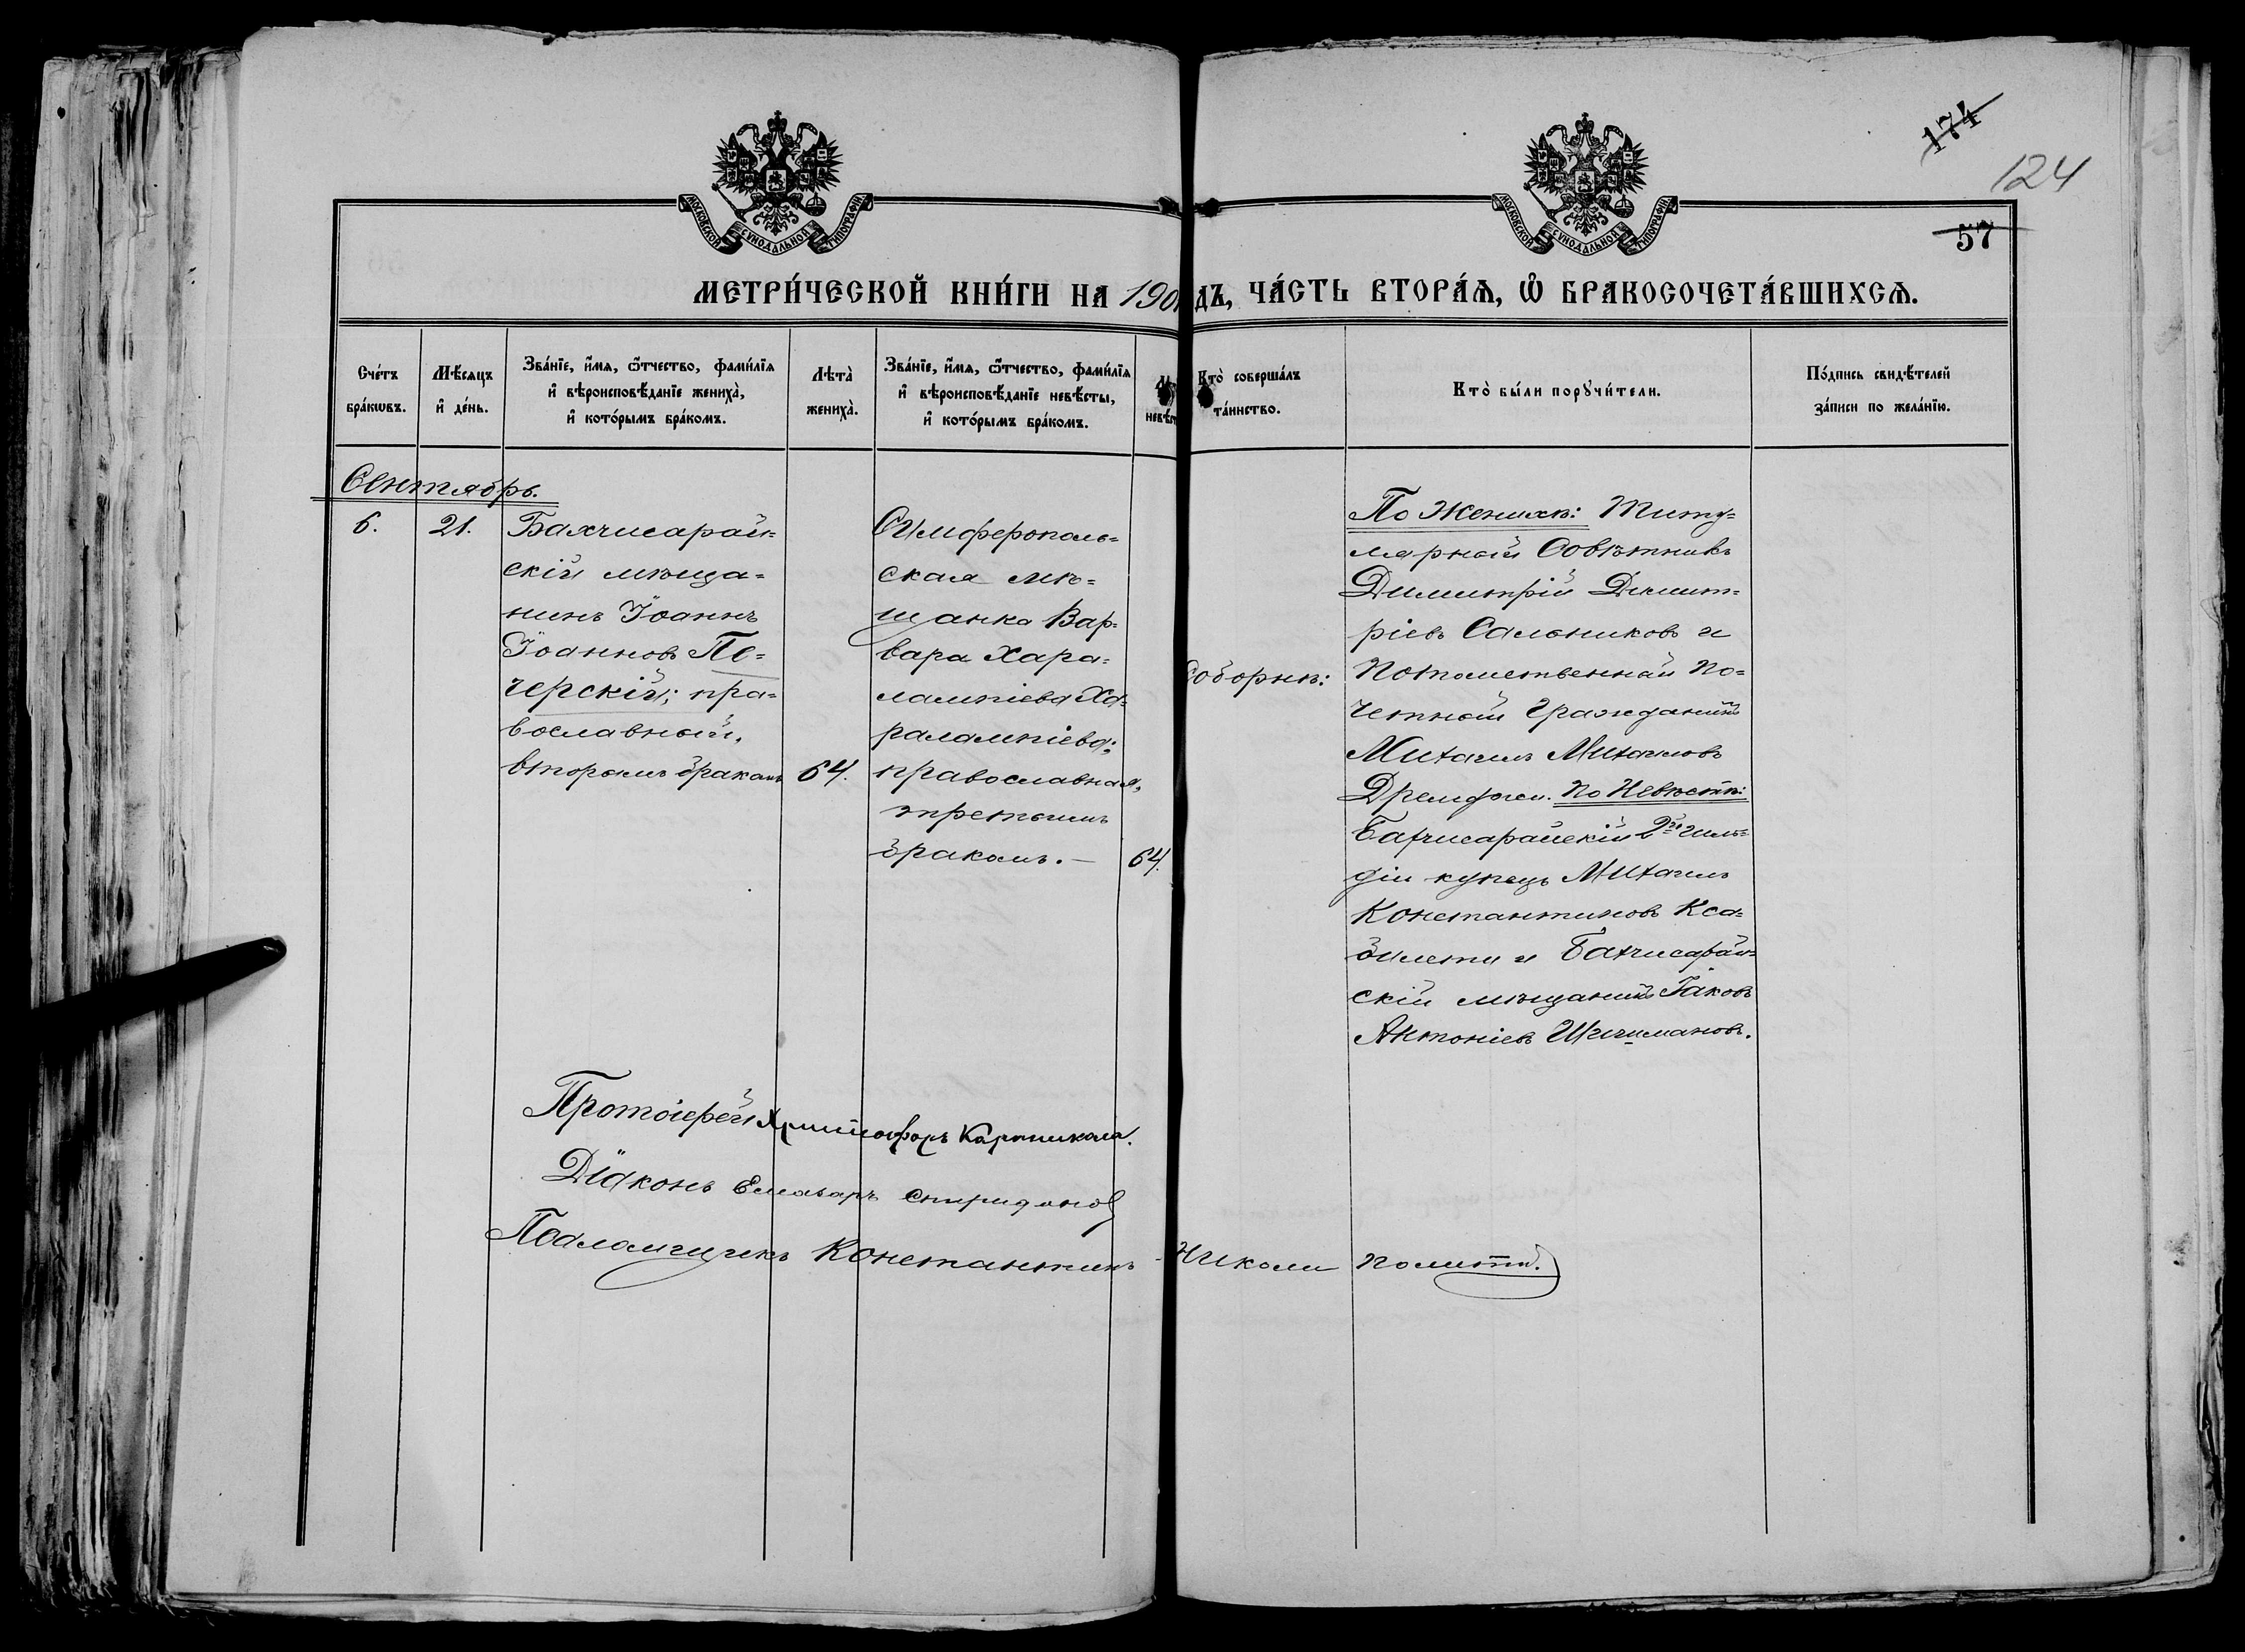 174
124
57
МОСКОВСКОЙ СѴНОДАЛЬНОЙ ТИПОГРАФІИ
МОСКОВСКОЙ СѴНОДАЛЬНОЙ ТИПОГРАФІИ
МЕТРИ́ЧЕСКОЙ КНИ́ГИ НА 190 ДЪ, ЧА́СТЬ ВТОРА́Ѧ, Ѽ БРАКОСОЧЕТА́ВШИХСѦ.
Сче́тъ
бра́кѡвъ.
Мѣ́сѧцъ
и҆ де́нь.
Зва́нїе, и҆́мѧ, ѻ҆́тчество, фами́лїѧ
и҆ вѣроисповѣ́данїе жениха̀,
и҆ кото́рымъ бра́комъ.
Лѣта̀
жениха̀.
Зва́нїе, и҆́мѧ, ѻ҆́тчество, фами́лїѧ
и҆ вѣроисповѣ́данїе невѣ́сты,
и҆ кото́рымъ бра́комъ.
невѣс
Кто̀ соверша́лъ
та́инство.
Кто̀ бы́ли порꙋчи́тели.
По́дпись свидѣ́телей
за́писи по жела́нїю.
Сентябрь.
6.
21.
Бахчисарай=
скій мѣща=
нинъ Іоаннъ
Іоанновъ Пе=
черскій; пра=
вославный,
вторымъ бракомъ
64.
Симферополь=
ская мѣ=
щанка Вар=
вара Хара=
лампіева Ха=
раламніева;
православная,
третьимъ
бракомъ. —
64.
Соборнѣ:
По Женихѣ: Титу=
лярный Совѣтникъ
Димитрій Димит=
ріевъ Сальниковъ и
Потомственный По=
четный Гражданинъ
Михаилъ Михаиловъ
По Невѣстѣ:
Бахчисарайскій 2й гиль=
діи купецъ Михаилъ
Константиновъ Кса=
билети и Бахчисарай=
скій мѣщанинъ Іаковъ
Антоніевъ Шишмановъ.
Протоіерей Христофоръ
Діаконъ Елеазаръ Спиридонов
Псаломщикъ Константинъ Николи Полити.